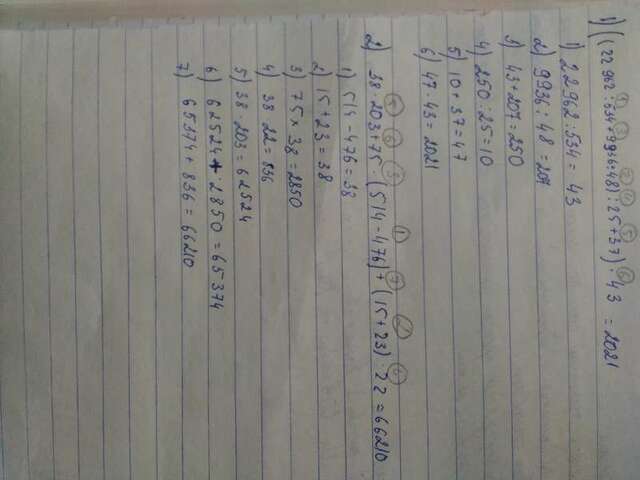 ① ③ ② ④ ⑤ ⑥
1) ((22962:534+9936:48):25+37)·43 = 2021
1) 22962:534 = 43
2) 9936:48 = 207
3) 43+207=250
4) 250:25=10
5) 10+37=47
6) 47·43=2021
⑤ ⑥ ③ ① ⑦ ② ④
2) 38·203+75·(514-476)+(15+23)·22=66210
1) 514-476=38
2) 15+23=38
3) 75×38=2850
4) 38·22=836
5) 38·203=62524
6) 62524+2850=65374
7) 65374+836=66210